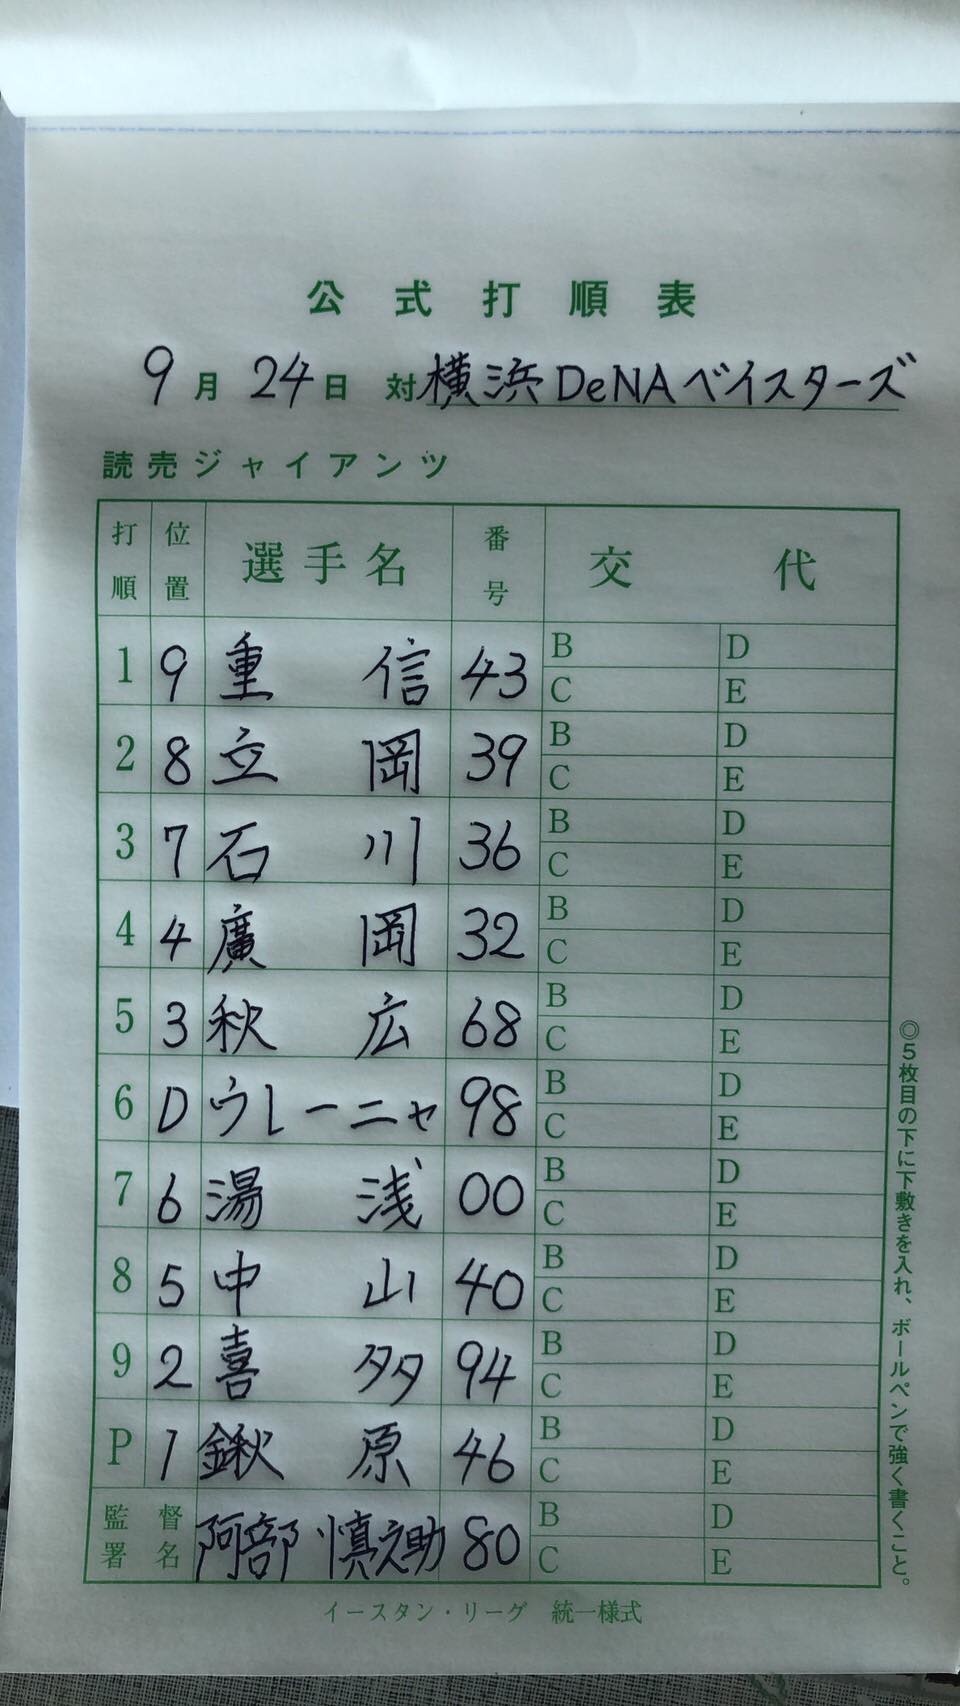 公式打順表
9月24日 対横浜DeNAベイスターズ
読売ジャイアンツ
打順 位置 選手名 番号 交代
1 9 重信 43 B D C E
2 8 立岡 39 B D C E
3 7 石川 36 B D C E
4 4 廣岡 32 B D C E
5 3 秋広 68 B D C E
6 D ウレーニャ 98 B D C E
7 6 湯浅 00 B D C E
8 5 中山 40 B D C E
9 2 喜多 94 B D C E
P 1 鍬原 46 B D C E
監督署名 阿部慎之助 80 B D C E
イースタン・リーグ 統一様式
◎5枚目の下に下敷きを入れ、ボールペンで強く書くこと。